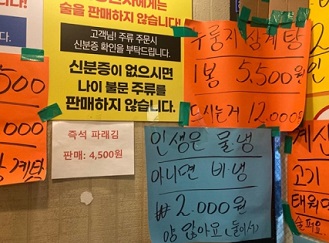 술을 판매하지 않습니다.
고객님! 주류 주문시
신분증 확인을 부탁드립니다.
신분증이 없으시면
나이 불문 주류를
판매하지 않습니다.
즉석 파래김
판매: 4,500원
누룽지 삼계탕
1봉 5.500원
드시는거 12.000원
인생은 물냉
아니면 비냉
₩2.000원
양 많아요 (둘이서)
500
000
계탕
계신
고기
태워